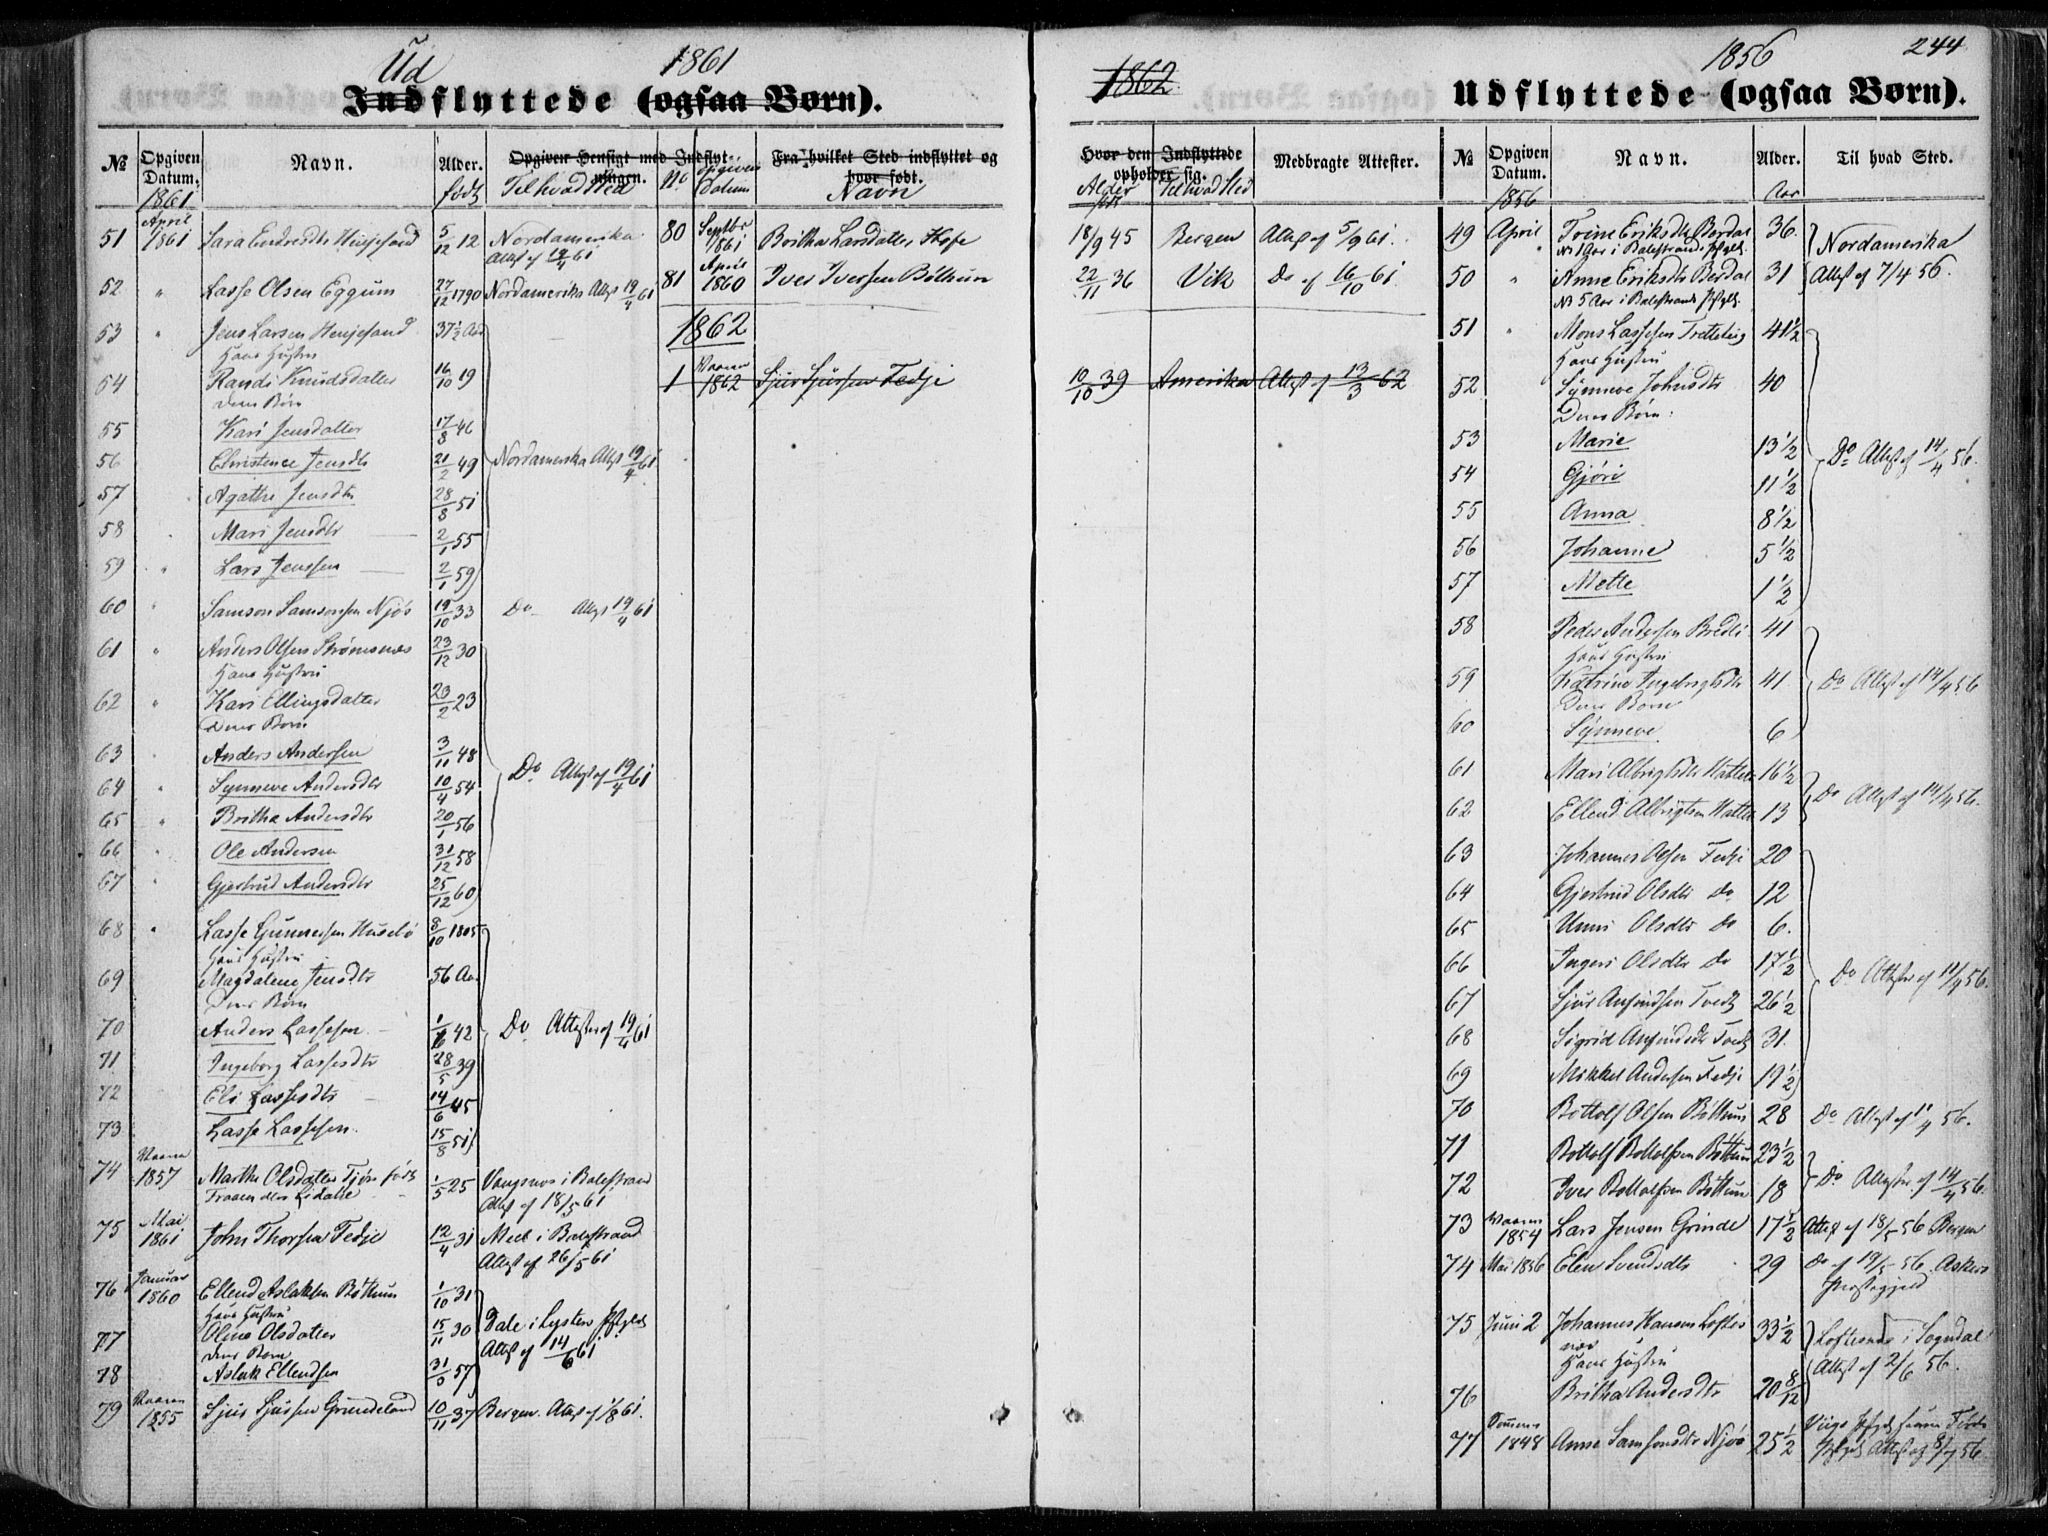 Ud 1861
Indflyttede (ogsaa Børn).
№ Opgiven Datum. Navn. Alder. Opgiven Hensigt med Indflytningen. Fra hvilket Sted indflyttet og hvor født.
1861 født Til hvad Sted No Opgiven Datum Navn
51 April 1861 Sara Endresdtr Henjesand 5/12 12 Nordamerika Attest af 19/4 61
52 " Lasse Olsen Eggum 27/12 1790 Nordamerika Attest 19/4 61
53 " Jens Larsen Henjesand 37 1/2 Aar
Hans Hustru
54 Randi Knudsdatter 16/10 19
Deres Børn
55 Kari Jensdatter 17/8 46
56 Christence Jensdtr 21/2 49 Nordamerika Attest 19/4 61
57 Agathe Jensdtr 28/8 51
58 Mari Jensdtr 2/1 55
59 " Lars Jenssen 2/1 59
60 " Samson Samsonsen Njøs 19/10 33 Do Attest 19/4 61
61 " Anders Olsen Strømsnæs 23/12 30
Hans Hustru
62 " Kari Ellingsdatter 23/2 23
Deres Børn
63 Anders Andersen 3/11 48
64 " Synneve Andersdtr 10/4 54 Do Attest af 19/4 61
65 " Britha Andersdtr 20/1 56
66 " Ole Andersen 31/12 58
67 " Gjertrud Andersdtr 25/12 60
68 " Lasse Gunnersen Husebø 8/10 1805
Hans Hustru
69 Magdalene Jensdtr 56 Aar
Deres Børn
70 Anders Lassesen 42 Do Attester af 19/4 61
71 Ingeborg Lassesdtr 28/5 39
72 Eli Lassesdtr 14/6 45
73 Lasse Lassesen 15/8 51
74 Vaaren 1857 Marthe Olsdatter Tjøn født 1/5 25 Vangsnes i Balestrand
Attest af 18/5 61
75 Mai 1861 John Thorsen Fedje 12/4 31 Meel i Balestrand
Attest af 26/5 61
76 Januar 1860 Ellend Aslaksen Bøthun 1/10 31
Hans Hustru
77 Oline Olsdatter 15/11 30 Dale i Lyster Pstgld
Deres Børn Attest af 14/6 61
78 Aslak Ellendsen 57
79 Vaaren 1855 Sjur Sjursen Grindeland 10/11 37 Bergen. Attest af 1/8 61.
80 Septbr 1861 Britha Larsdatter Hofe
81 April 1860 Iver Iversen Bøthun
1862
1 Vaaren 1862 Sjur Sjursen Fedje
1862. 1856 244
Udflyttede (ogsaa Børn).
Hvor den Indflyttede opholder sig. Medbragte Attester. № Opgiven Datum. Navn. Alder. Til hvad Sted.
Alder født Til hvad Sted 1856 Aar
18/9 45 Bergen Attest af 5/9 61.
22/11 36 Vik Do af 16/10 61.
10/10 39 Amerika Attest af 13/3 62
49 April Trine Eriksdtr Berdal 36
NB 1 Aar i Balestrands Pgld. Nordamerika
50 " Anne Eriksdtr Berdal 31 Attest af 7/4 56.
NB 5 Aar i Balestrands Pstgld.
51 " Mons Lassesen Tretteteig 41 1/2
Hans Hustru
52 Synneve Johnsdtr 40
Deres Børn:
53 Marie 13 1/2 Do Attest af 14/4 56.
54 Gjøri 11 1/2
55 Anna 8 1/2
56 Johanne 5 1/2
57 Mette 1 1/2
58 Peder Andersen Bredli 41
Hans Hustru
59 Katrine Ingebrigtsdtr 41 Do Attest af 14/4 56
Deres Børn
60 Synneve 6
61 Mari Albrigtsdtr 16 1/2 Do Attest af 14/4 56.
62 Ellend Albrigtsen 13
63 Johannes Olsen Fedje 20
64 Gjertrud Olsdtr Do 12
65 Unni Olsdtr Do 6.
66 Ingeri Olsdtr Do 17 1/2 Do Attester af 11/4 56.
67 Sjur Anfindsen Tvedt 26 1/2
68 Sigrid Anfindsdtr Tvedt 31.
69 Mikkel Andersen Fedje 19 1/2
70 Bottolf Olsen Bøthun 28 Do Attest af 11/4 56.
71 Bottolf Bottolfsen Bøthun 23 1/2
72 Iver Bottolfsen Bøthun 18 Do Attester af 14/4 56.
73 Vaaren 1854 Lars Jensen Grinde 17 1/2 Attest af 18/5 56 Bergen
74 Mai 1856 Elen Svendsdtr 29 Do af 19/5 56 Askers
Præstegjeld
75 Juni 2 Johannes Hansen Loftesnæs 33 1/2 Loftesnæs i Sogndal
Hans Hustru Attest af 2/6 56.
76 Britha Andersdtr 20 8/12
77 1848 Anne Samsonsdtr Njøs 25 1/2 Attest af 8/7 56